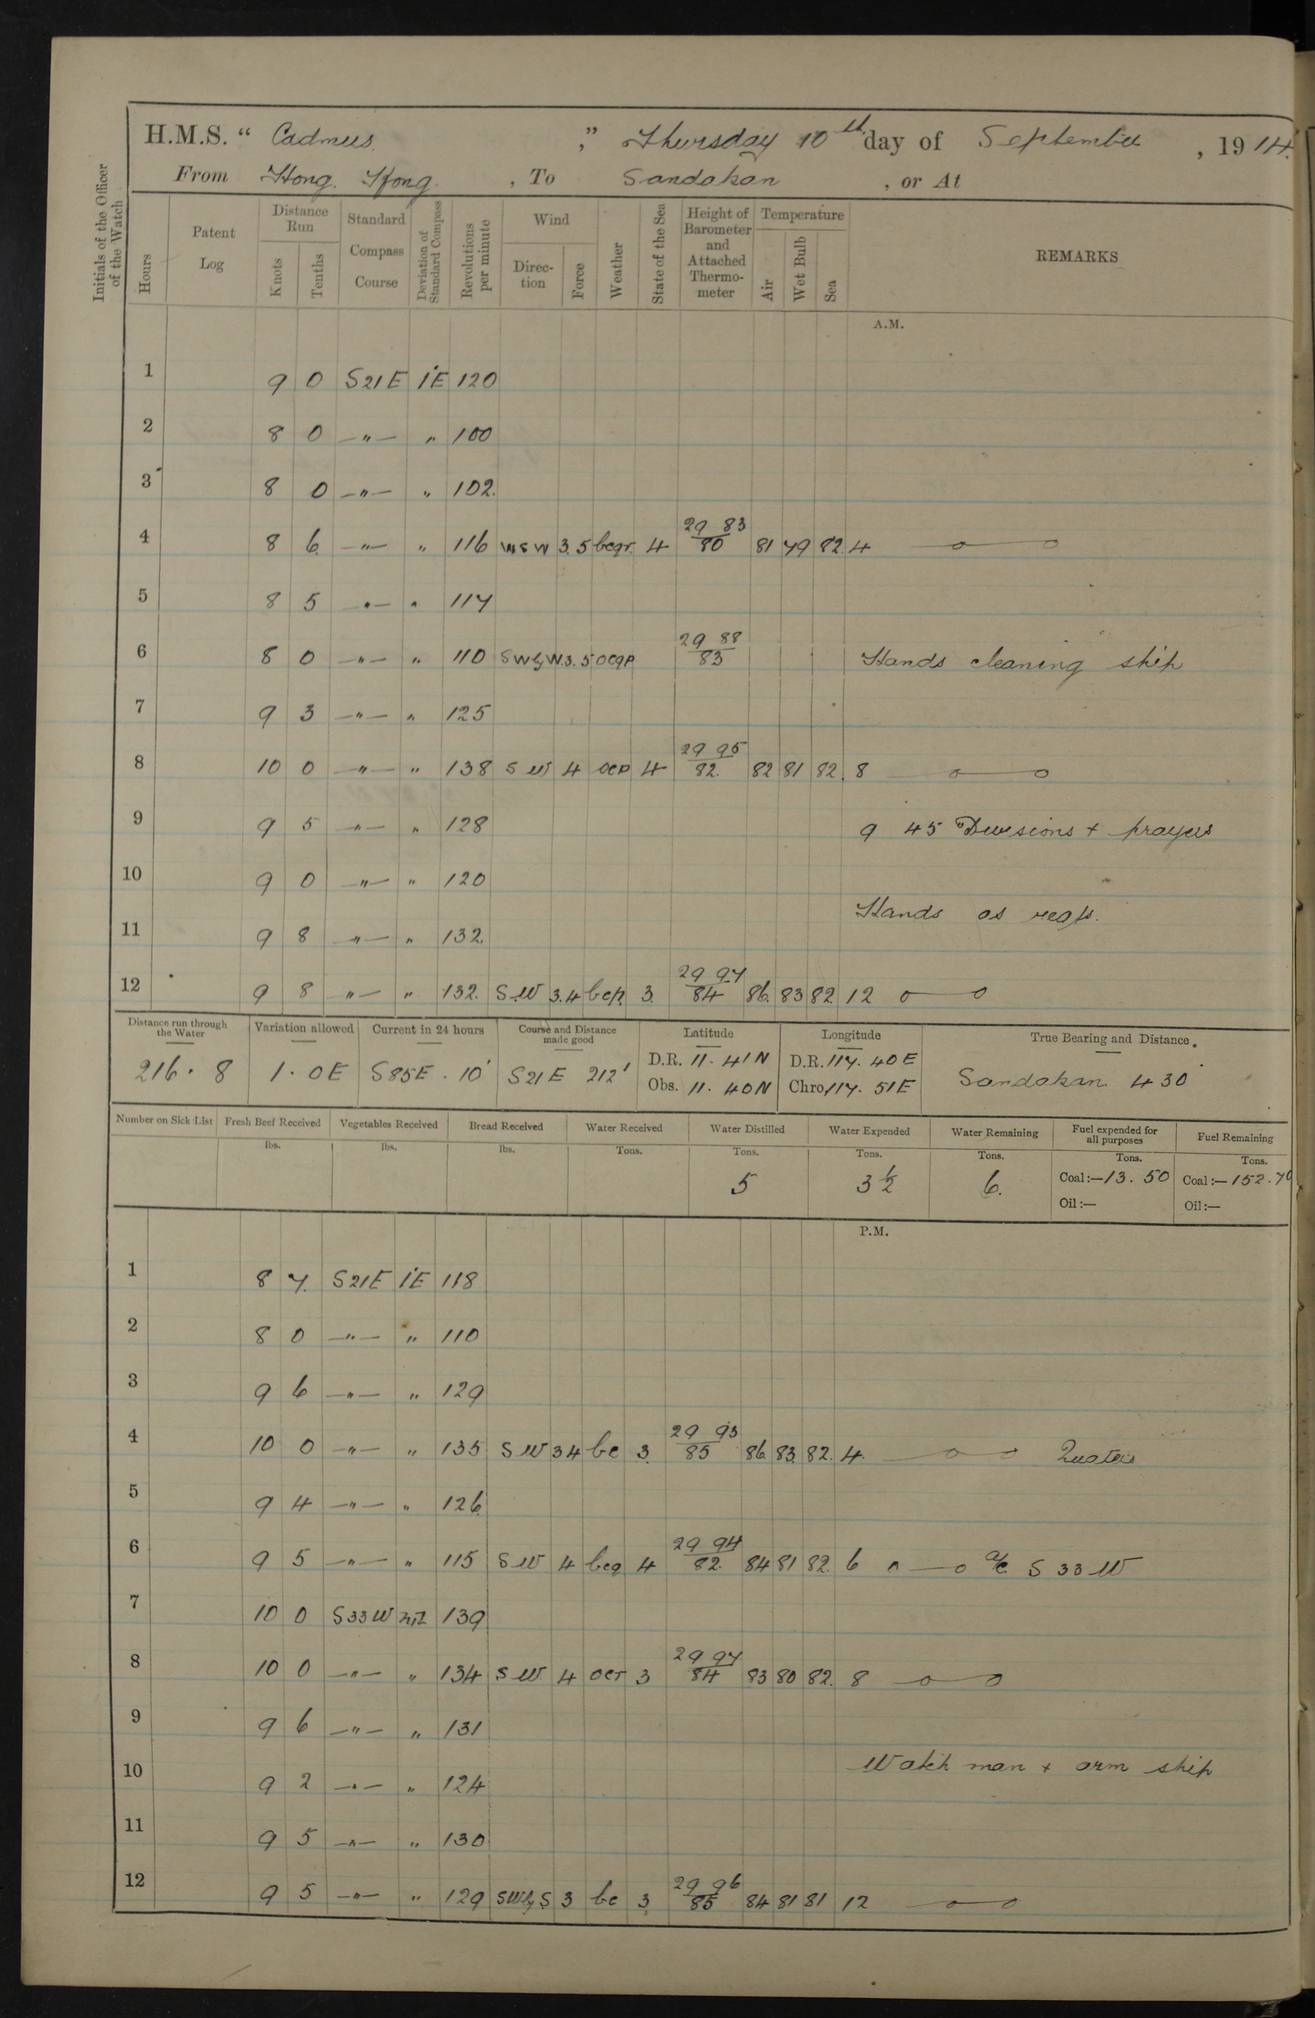 H.M.S. “ Cadmus ,” Thursday 10th day of September , 1914.
From Hong Kong , To Sandakan , or At
Initials of the Officer of the Watch
Hours
Patent Log
Distance Run
Knots
Tenths
Standard Compass Course
Deviation of Standard Compass
Revolutions per minute
Wind
Direc- tion
Force
Weather
State of the Sea
Height of Barometer and Attached Thermo- meter
Temperature
Air
Wet Bulb
Sea
REMARKS
A.M.
1 9 0 S21E 1°E 120
2 8 0 —"— " 100
3 8 0 —"— " 102.
4 8 6 —"— " 116 WSW 3.5 bcqr. 4 29 83/80 81 79 82 4
5 8 5 —"— " 117
6 8 0 —"— " 110 SWbyW. 3.5 ocqp 29 88/83 Hands cleaning ship
7 9 3 —"— " 125
8 10 0 —"— " 138 SW 4 ocp 4 29 95/82. 82 81 82. 8
9 9 5 —"— " 128 9 45 Divisions + prayers
10 9 0 —"— " 120
Hands as reqts.
11 9 8 —"— " 132.
12 9 8 —"— " 132. SW 3.4 bcp. 3. 29 97/84 86. 83 82 12
Distance run through the Water
216.8
Variation allowed
1.0E
Current in 24 hours
S85E. 10'
Course and Distance made good
S21E 212'
Latitude
D.R. 11. 41N
Obs. 11. 40N
Longitude
D.R. 117. 40E
Chro. 117. 51E
True Bearing and Distance.
Sandakan 430'
Number on Sick List
Fresh Beef Received
lbs.
Vegetables Received
lbs.
Bread Received
lbs.
Water Received
Tons.
Water Distilled
Tons.
5
Water Expended
Tons.
3½
Water Remaining
Tons.
6.
Fuel expended for all purposes
Tons.
Coal:—13.50
Oil:—
Fuel Remaining
Tons.
Coal:—152.70
Oil:—
P.M.
1 8 7. S21E 1°E 118
2 8 0 —"— " 110
3 9 6 —"— " 129
4 10 0 —"— " 135 SW 34 bc 3. 29 93/85 86. 83. 82. 4. Quarters
5 9 4 —"— " 126
6 9 5 —"— " 115 SW 4 bcq 4 29 94/82. 84 81 82. 6 a/c S 33 W
7 10 0 S33W nil 139
8 10 0 —"— " 134 SW 4 ocr 3 29 97/84 83 80 82. 8
9 9 6 —"— " 131
10 9 2 —"— " 124 Watch man + arm ship
11 9 5 —"— " 130
12 9 5 —"— " 129 SWbyS 3 bc 3 29 96/85 84 81 81 12